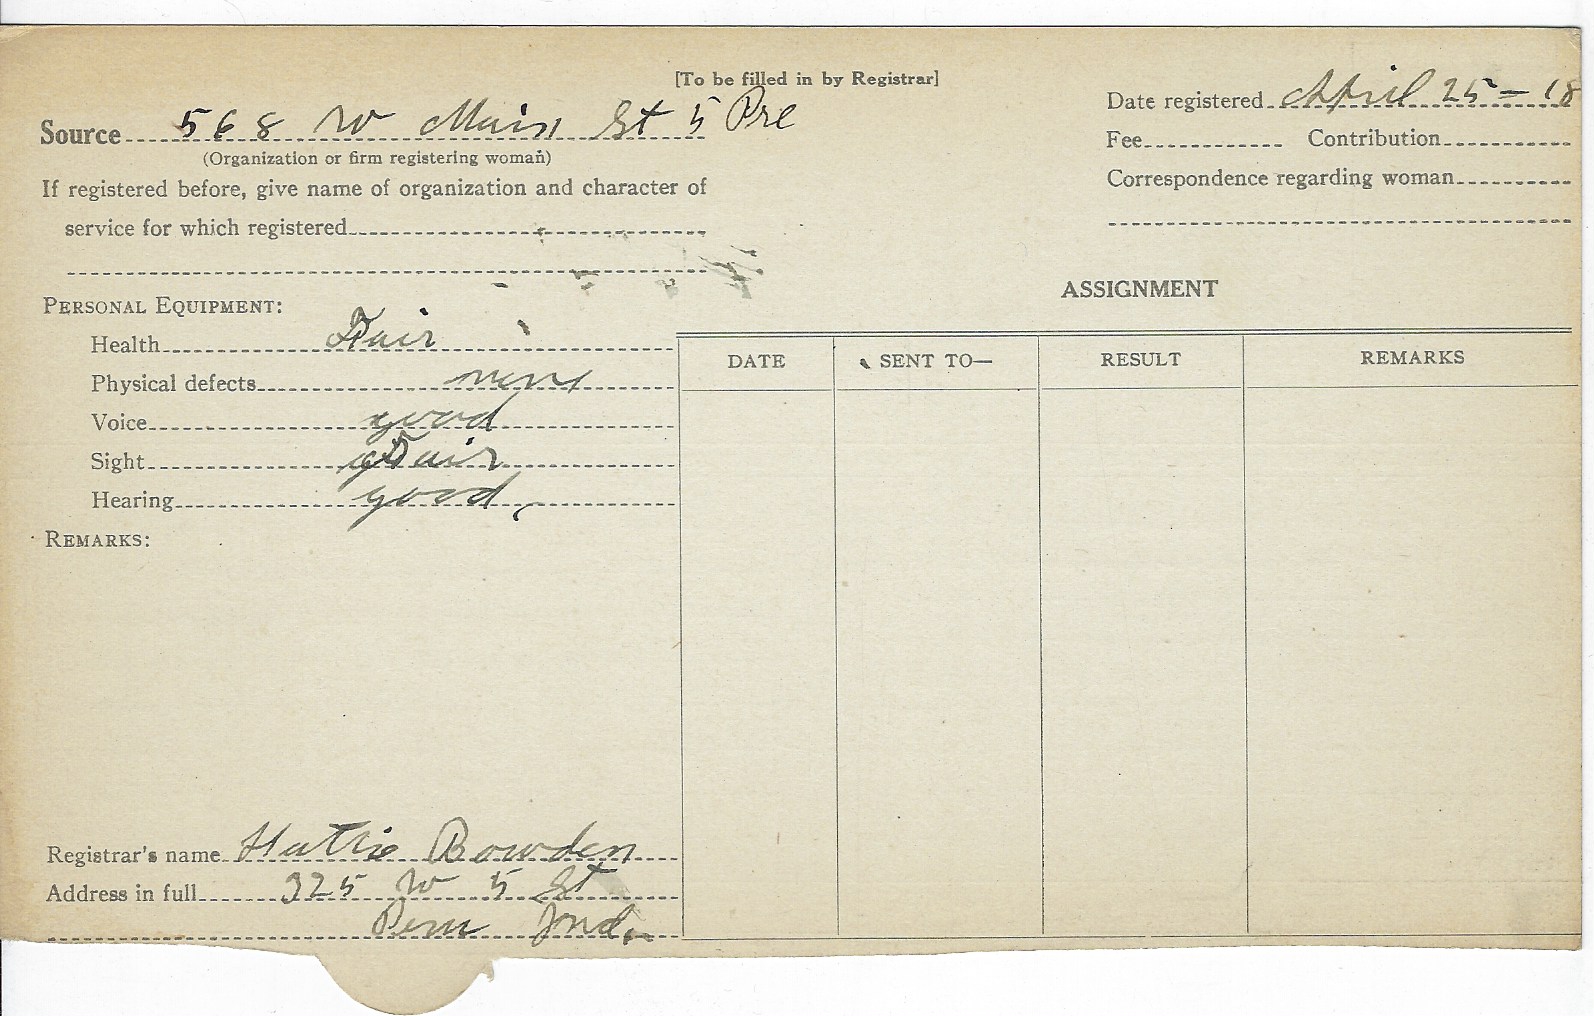 [To be filled in by Registrar]
Date registered April 25 - 18
Source 568 W Main St 5 Pre
(Organization or firm registering woman)
Fee Contribution
If registered before, give name of organization and character of
service for which registered
Correspondence regarding woman
PERSONAL EQUIPMENT:
Health Fair
Physical defects none
Voice good
Sight Fair
Hearing good
REMARKS:
ASSIGNMENT
DATE SENT TO— RESULT REMARKS
Registrar's name Hattie Bowden
Address in full 325 W 5 St
Peru Ind.